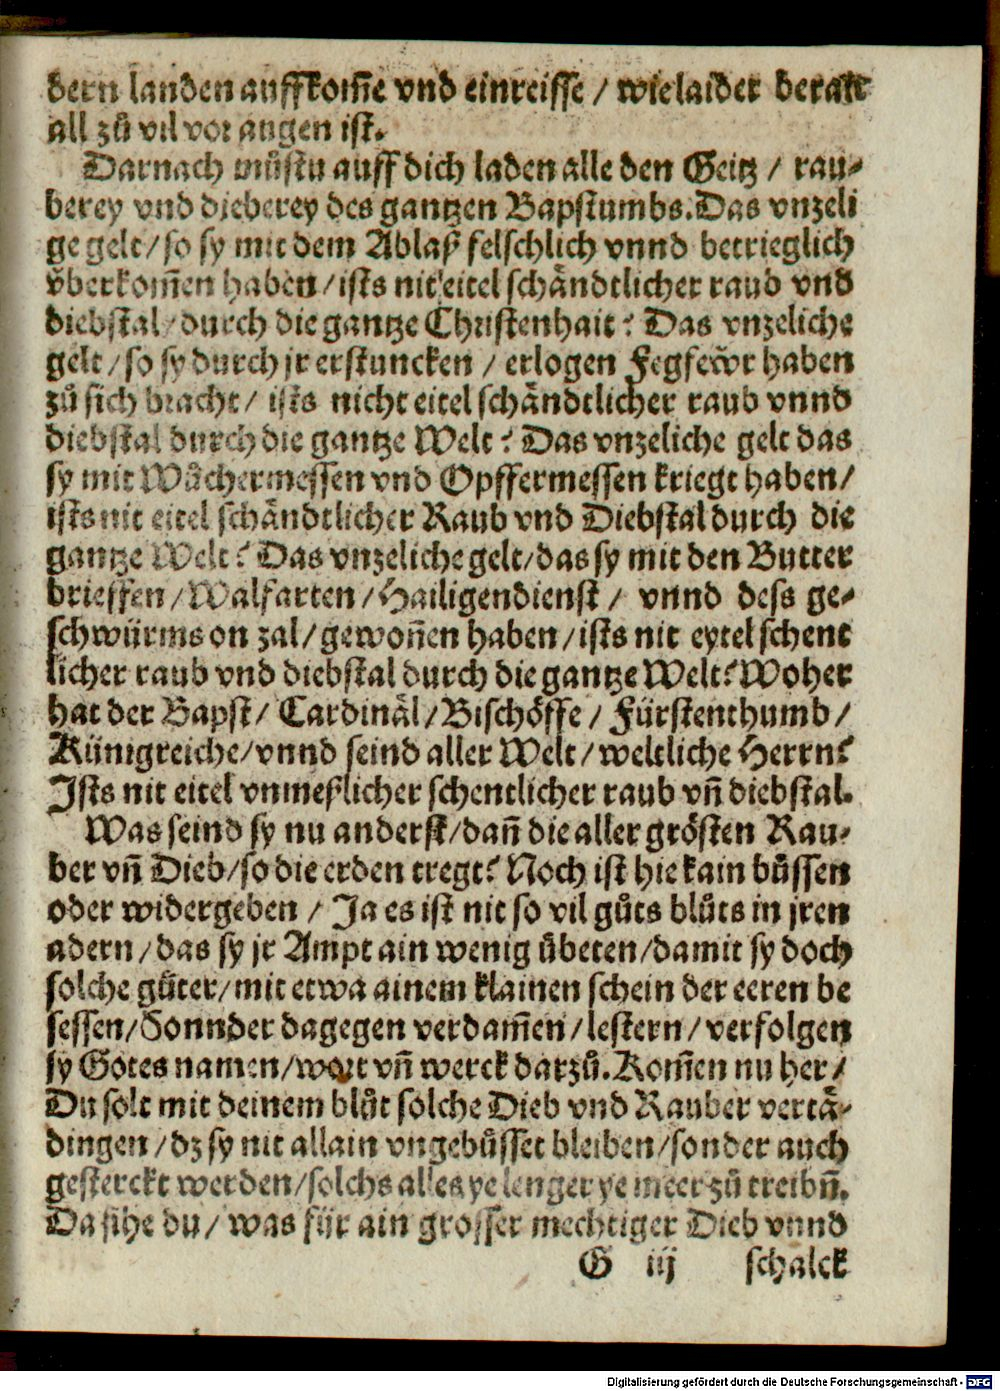 dern landen auffkom̃e vnd einreisse / wie laider berait
all zů vil vor augen ist.
Darnach můstu auff dich laden alle den Geitz / rau⸗
berey vnd dieberey des gantzen Bapstumbs. Das vnzeli
ge gelt / so sy mit dem Ablaß felschlich vnnd betrieglich
vͤberkom̃en haben / ists nit eitel schändtlicher raub vnd
diebstal / durch die gantze Christenhait? Das vnzeliche
gelt / so sy durch jr erstuncken / erlogen Fegfewr haben
zů sich bracht / ists nicht eitel schändtlicher raub vnnd
diebstal durch die gantze Welt? Das vnzeliche gelt das
sy mit Wůchermessen vnd Opffermessen kriegt haben /
ists nit eitel schändtlicher Raub vnd Diebstal durch die
gantze Welt? Das vnzeliche gelt / das sy mit den Butter
brieffen / Walfarten / Hailigendienst / vnnd dess ge⸗
schwürms on zal / gewoñen haben / ists nit eytel schent
licher raub vnd diebstal durch die gantze Welt? Woher
hat der Bapst / Cardinäl / Bischöffe / Fürstenthumb /
Künigreiche / vnnd seind aller Welt / weltliche Herrn?
Ists nit eitel vnmeßlicher schentlicher raub vñ diebstal.
Was seind sy nu anderst / dañ die aller grösten Rau⸗
ber vñ Dieb / so die erden tregt? Noch ist hie kain bůssen
oder widergeben / Ja es ist nit so vil gůts blůts in jren
adern / das sy jr Ampt ain wenig ůbeten / damit sy doch
solche gůter / mit etwa ainem klainen schein der eeren be
sessen / Sonnder dagegen verdam̃en / lestern / verfolgen
sy Gotes namen / wort vñ werck darzů. Kom̃en nu her /
Du solt mit deinem blůt solche Dieb vnd Rauber vertä⸗
dingen / dz sy nit allain vngebůsset bleiben / sonder auch
gesterckt werden / solchs alles ye lenger ye meer zů treibñ.
Da sihe du / was für ain grosser mechtiger Dieb vnnd
G iij schalck
Digitalisierung gefördert durch die Deutsche Forschungsgemeinschaft - DFG